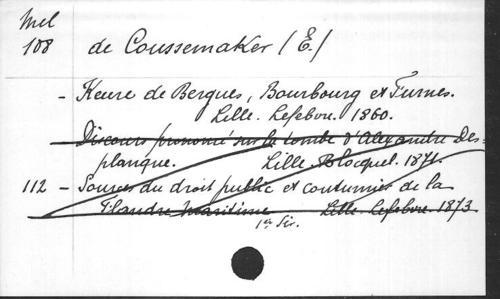 Mel
108 de Coussemaker (E.)
- Keure de Bergues, Bourbourg et Furnes.
Lille. Lefebvre. 1860.
Discours prononcé sur la tombe d'Alexandre Des-
planque. Lille. Blocquel. 1871.
112 - Sources du droit public et coutumier de la
Flandre maritime Lille. Lefebvre. 1873
1re Sér.